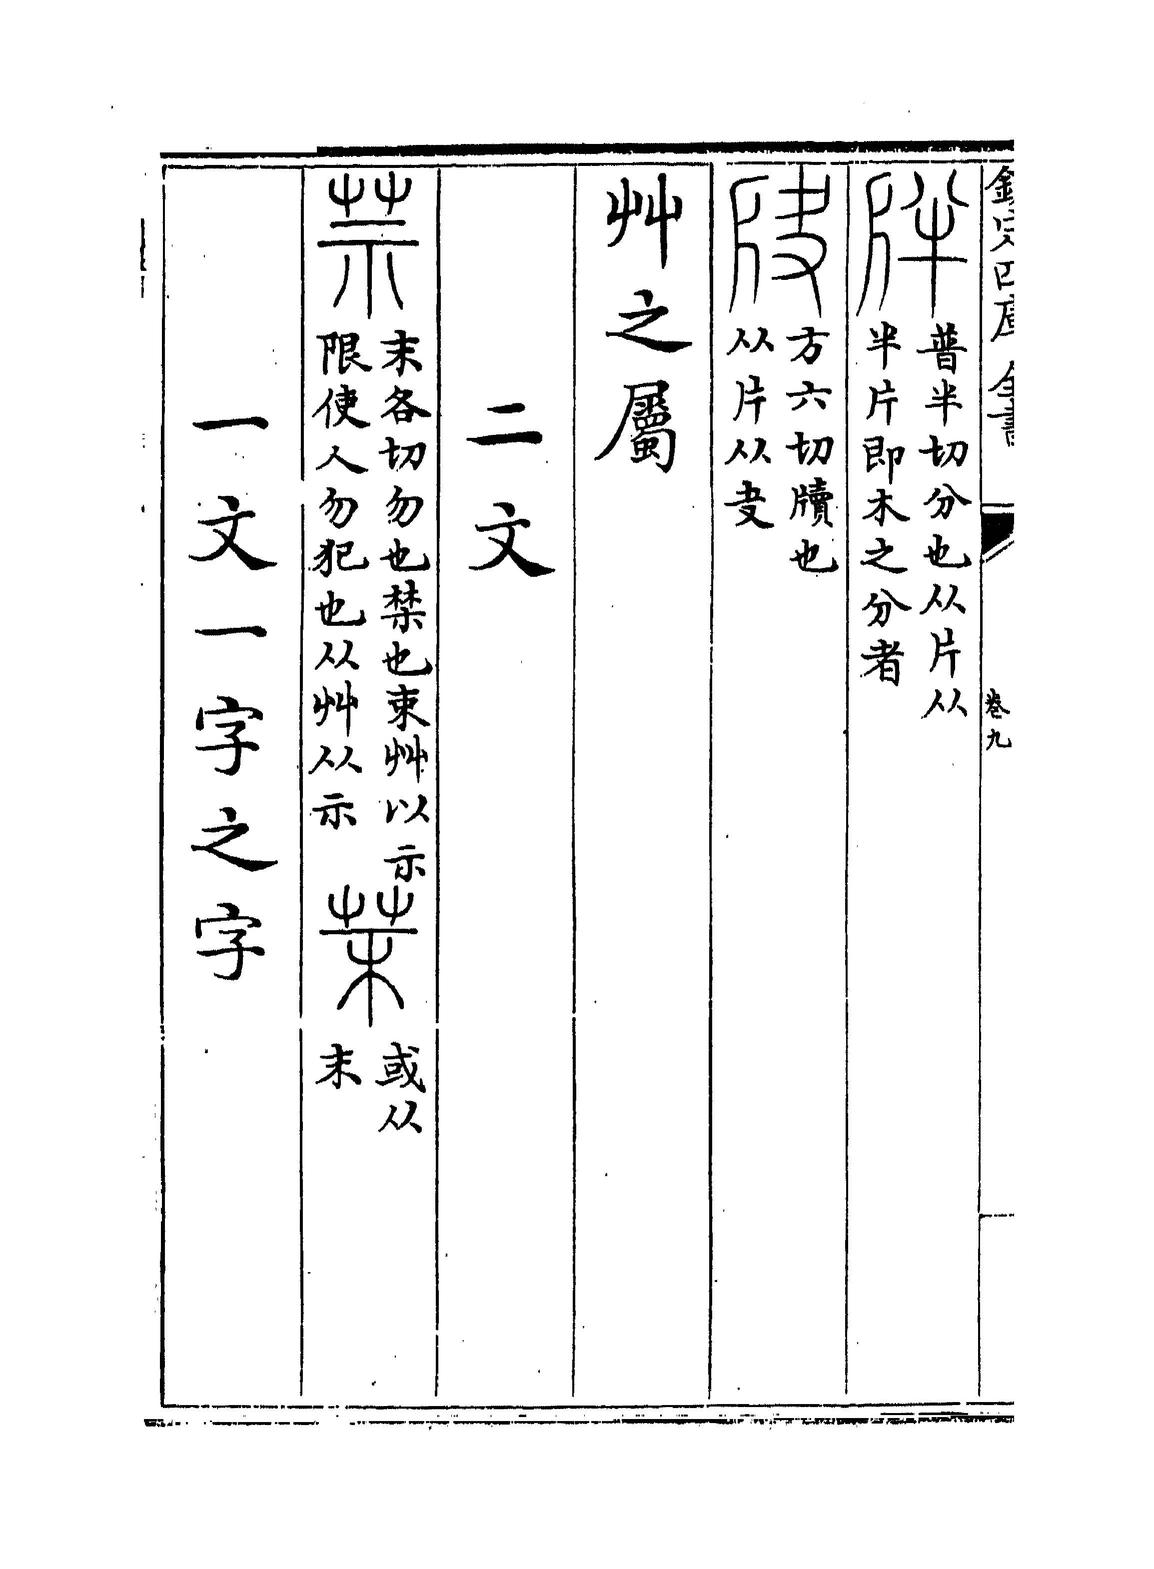 欽定四庫全書
卷九
普半切分也从片从
半片即木之分者
方六切牘也
从片从叏
艸之屬
二文
末各切勿也禁也束艸以示
限使人勿犯也从艸从示
或从
末
一文一字之字